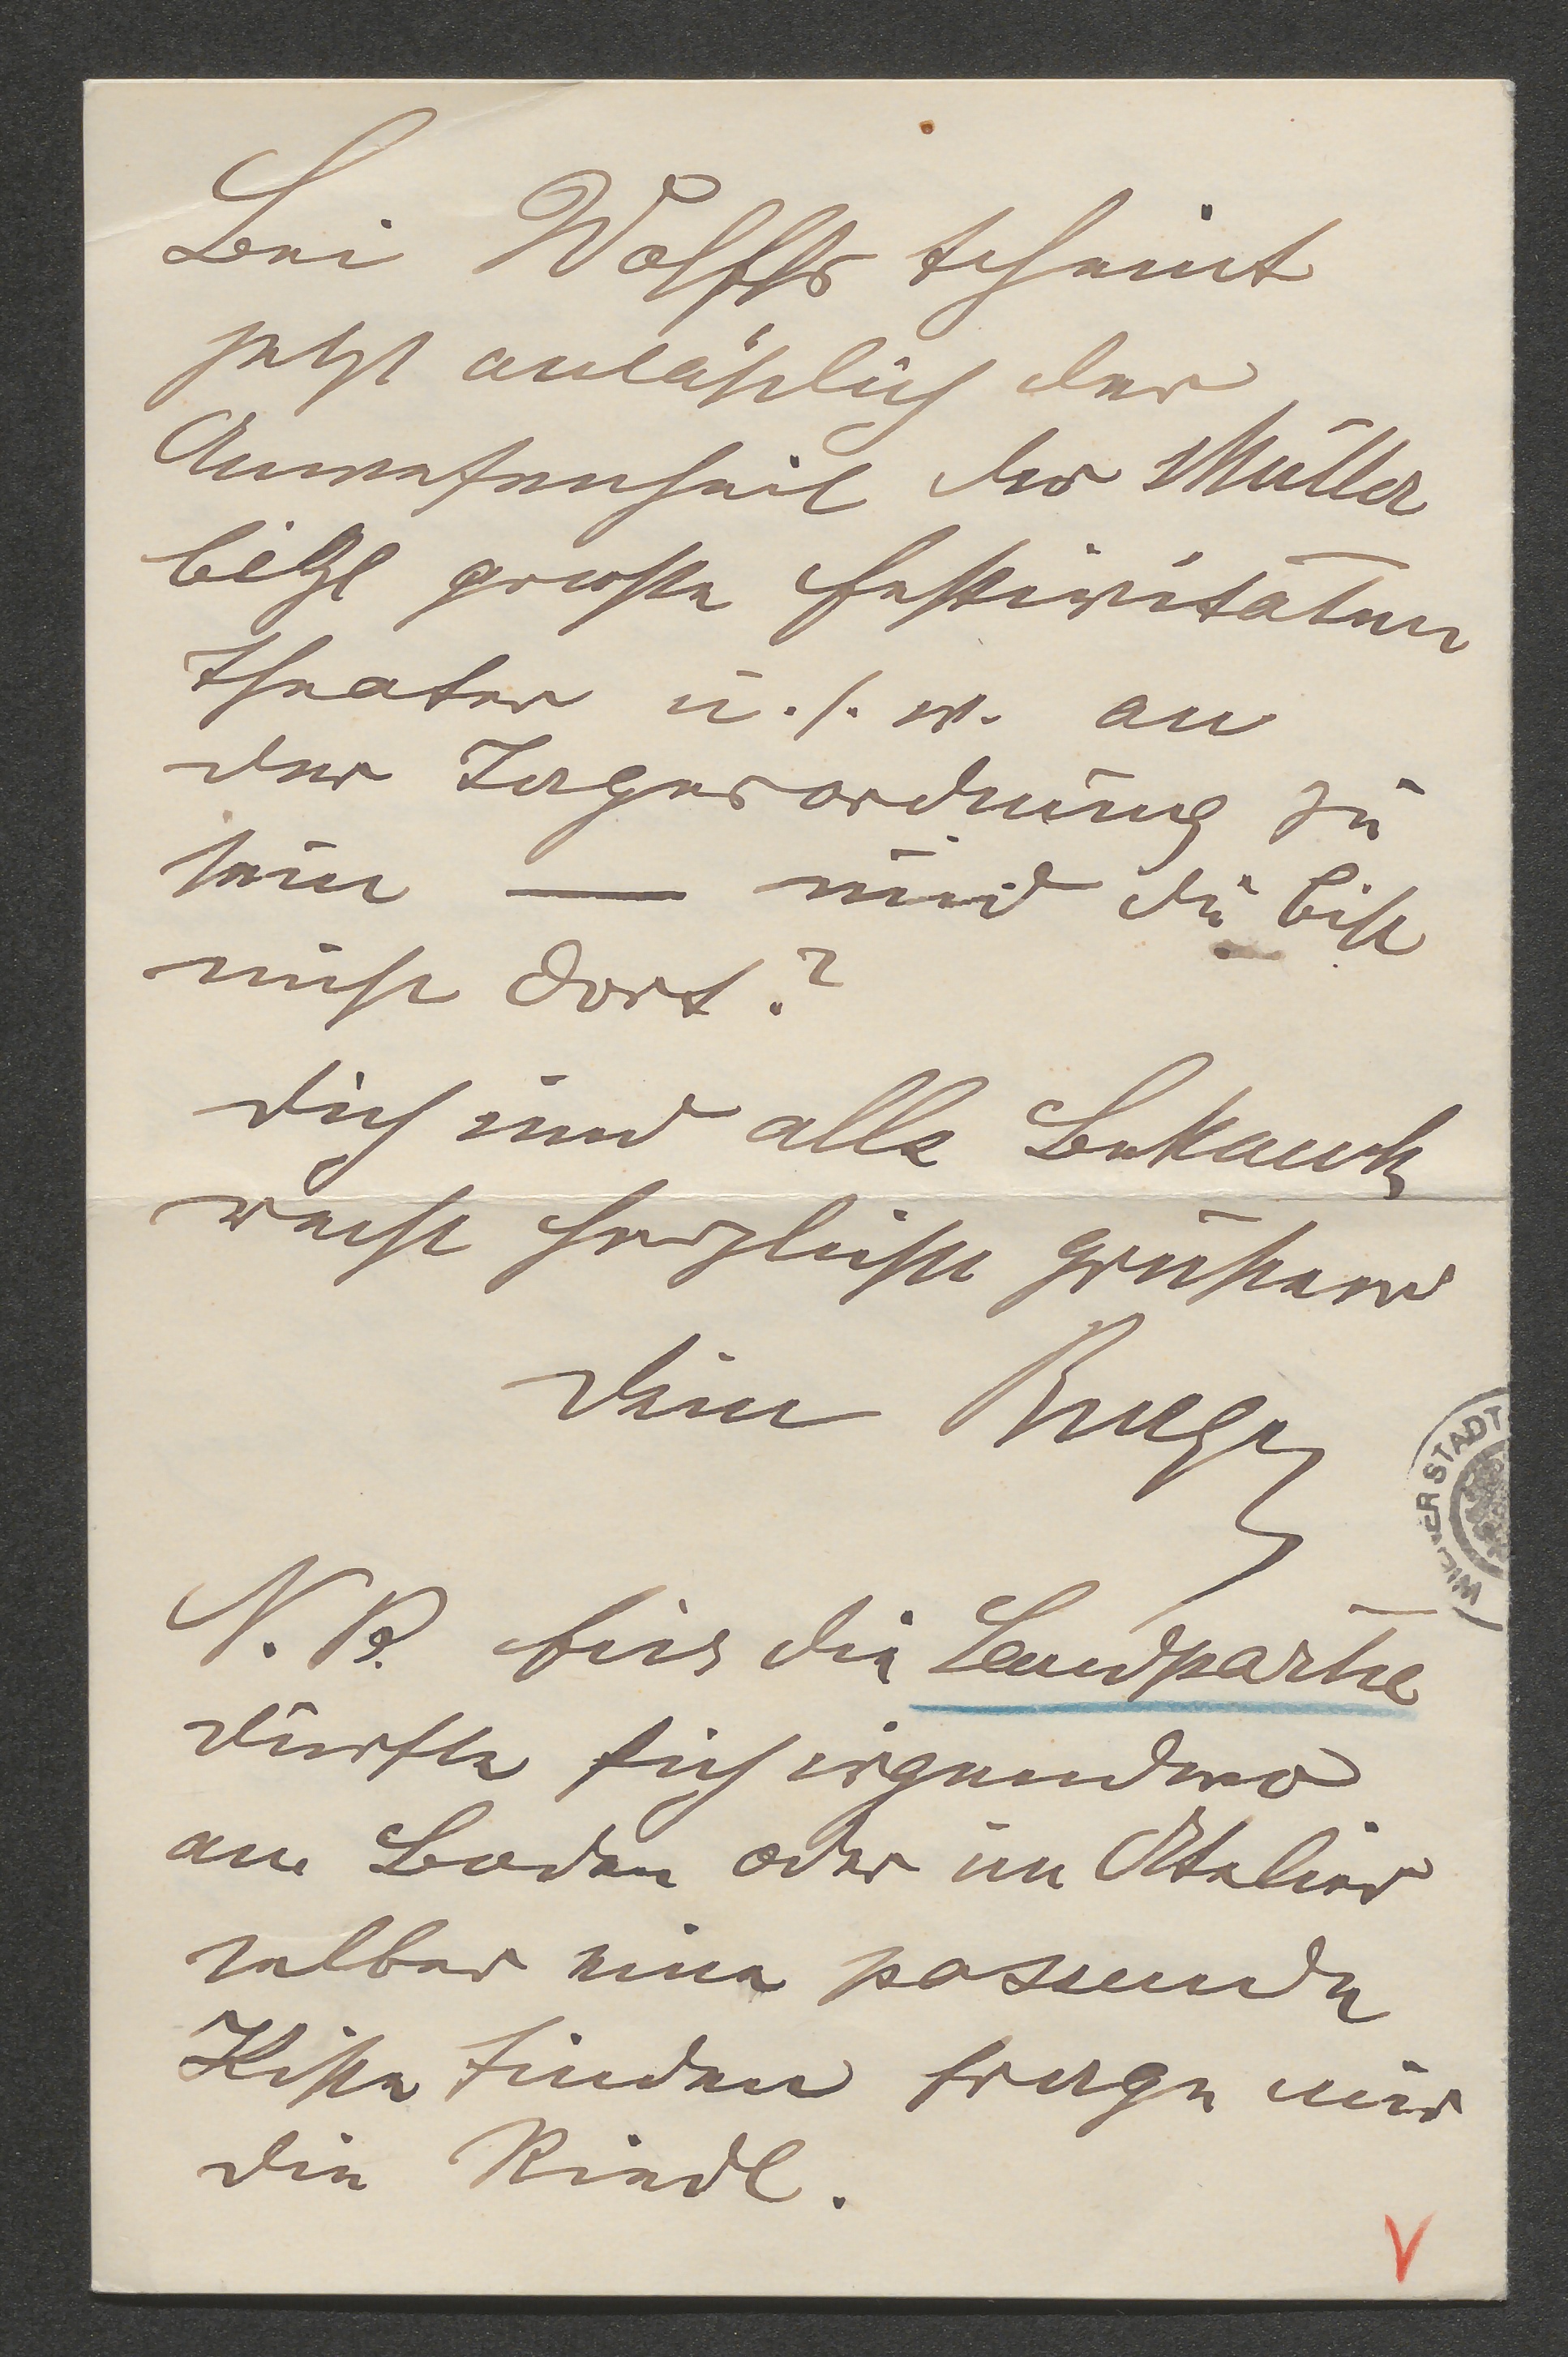 Bei Wolffs scheint
jetzt anläßlich der
Anwesenheit der Müller
große Festivitäten
Theater u. s. w. an
der Tagesordnung zu
sein — und du bist
nicht dort?
dich und alle Bekannte
recht herzlichst grüßend
dein
N. B. für die Landpartie
dürfte sich irgendwo
am Boden oder im Atelier
selber eine passende
Kiste finden frage nur
die Riedl.
WIENER STADT
V